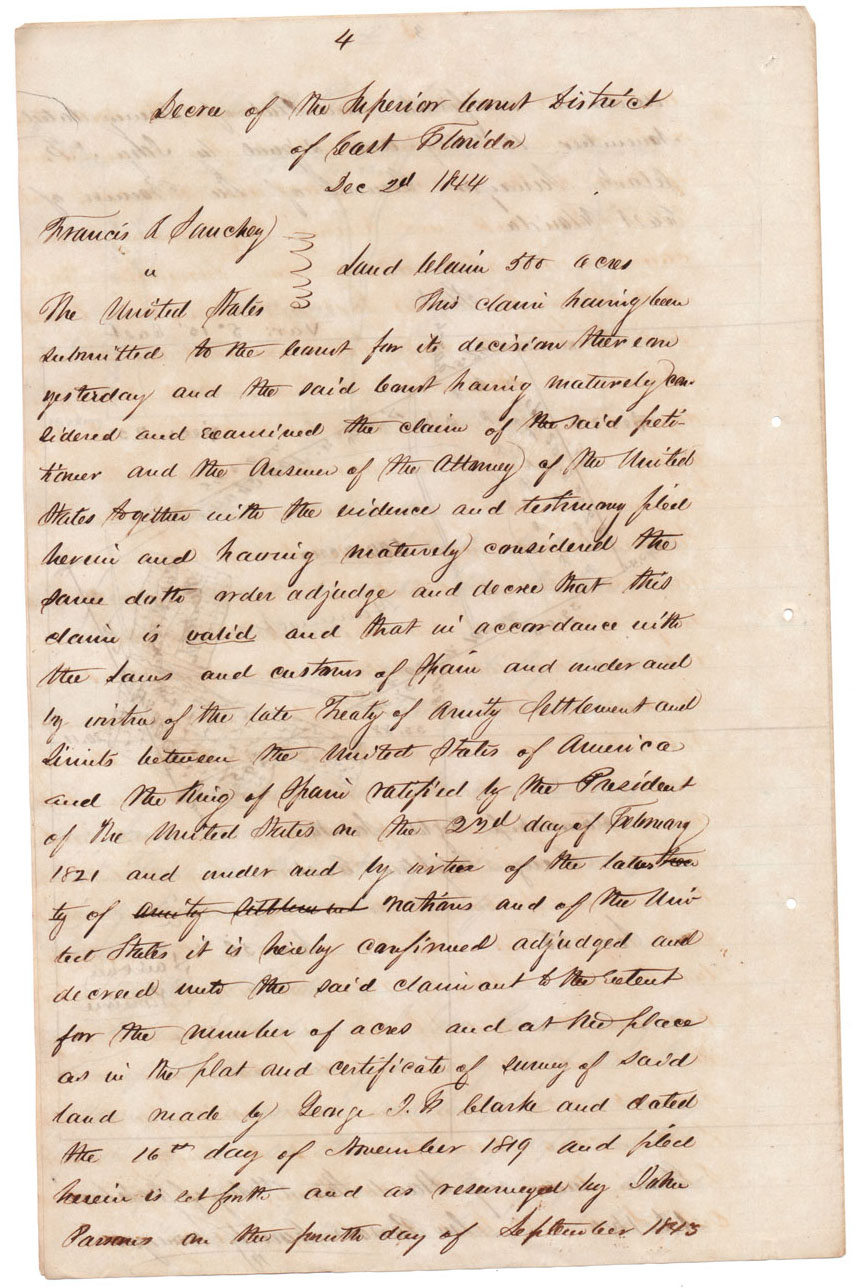 4
Decree of the Superior Court District
of East Florida
Dec 2d 1844
Francis R Sanchey
"
Land Claim 500 acres
The United States This claim having been
submitted to the Court for its decision thereon
yesterday and the said Court having maturely con
sidered and examined the claim of the said peti-
tioner and the Answer of the Attorney of the United
States together with the evidence and testimony filed
herein and having maturely considered the
same doth order adjudge and decree that this
claim is valid and that in accordance with
the Laws and customs of Spain and under and
by virtue of the late Treaty of Amity Settlement and
Limits between the United States of America
and the King of Spain ratified by the President
of the United States on the 22nd day of February
1821 and under and by virtue of the
ty of amity settlement nations and of the Uni
ted States it is hereby confirmed adjudged and
decreed unto the said claimant to the Extent
for the number of acres and at the place
as in the plat and certificate of survey of said
land made by George J. F Clarke and dated
the 16th day of November 1819 and filed
herein is set forth and as resurveyed by John
Parsons on the fourth day of September 1843